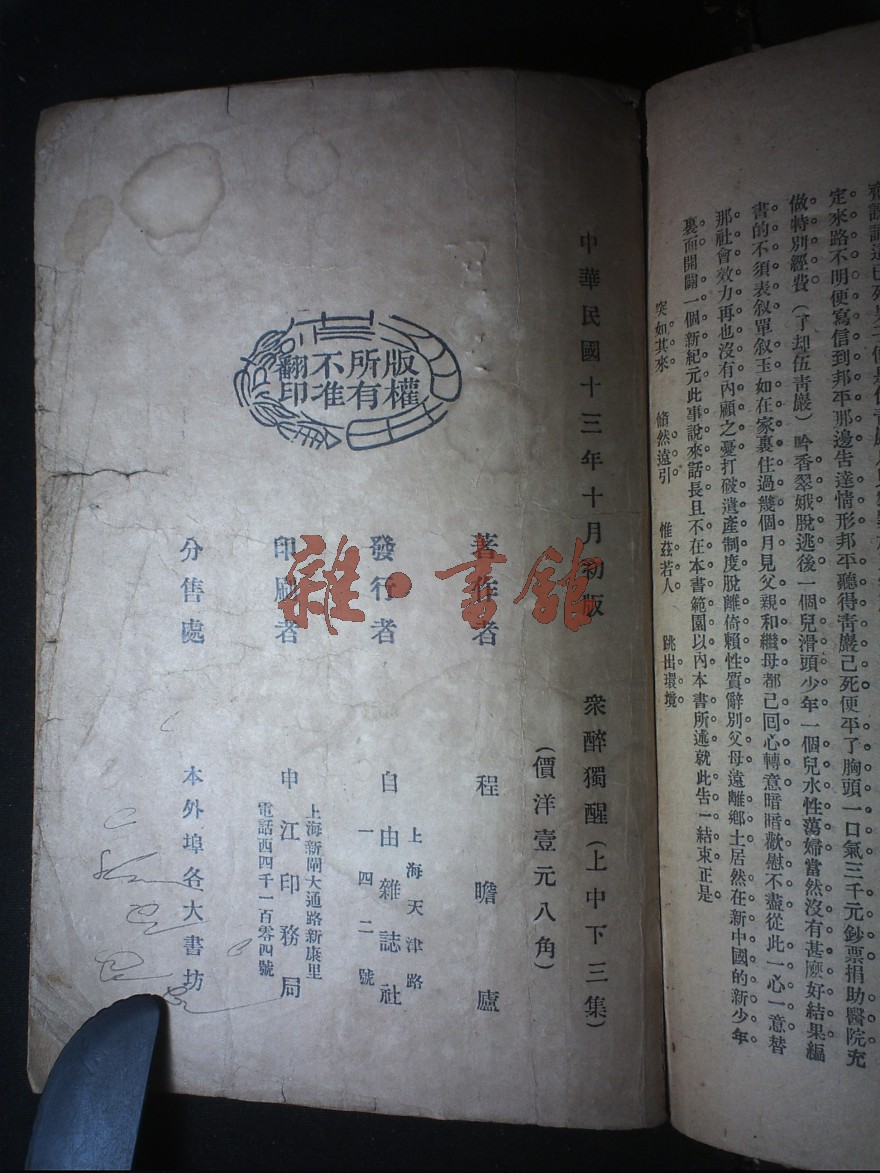 定來路不明便寫信到邦平那邊告達情形邦平聽得青巖已死便平了胸頭一口氣三千元鈔票捐助醫院充
做特別經費(了却伍青巖)吟香翠娥脫逃後一個兒滑頭少年一個兒水性蕩婦當然沒有甚麽好結果編
書的不須表叙單叙玉如在家裏住過幾個月見父親和繼母都已回心轉意暗暗歡慰不盡從此一心一意替
那社會效力再也沒有內顧之憂打破遺產制度脫離倚賴性質辭別父母遠離鄉土居然在新中國的新少年
裏面開闢一個新紀元此事說來話長且不在本書範圍以內本書所述就此告一結束正是
突如其來 翛然遠引 惟茲若人 跳出環境
中華民國十三年十月初版
衆醉獨醒(上中下三集)
(價洋壹元八角)
著作者 程瞻廬
發行者 上海天津路
自由雜誌社
一四二號
印刷者 上海新閘大通路新康里
申江印務局
電話西四千一百零四號
分售處 本外埠各大書坊
版權所有不准翻印
雜·書館